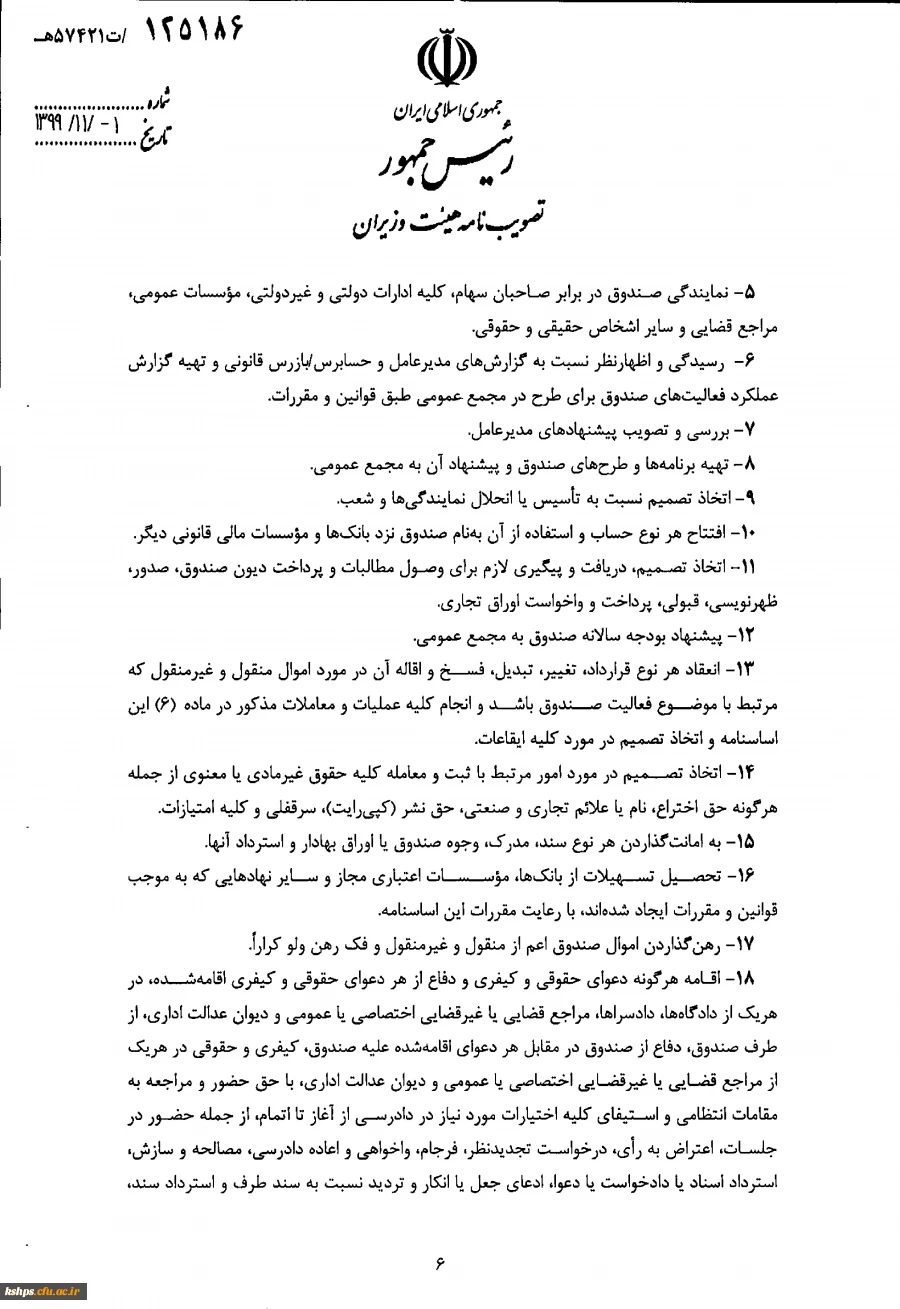 ۱۲۵۱۸۶ /ت۵۷۴۲۱هـ
شماره
تاریخ ۱۳۹۹/۱۱/۰۱
جمهوری اسلامی ایران
رئیس جمهور
تصویب نامه هیئت وزیران
۵- نمایندگی صندوق در برابر صاحبان سهام، کلیه ادارات دولتی و غیردولتی، مؤسسات عمومی،
مراجع قضایی و سایر اشخاص حقیقی و حقوقی.
۶- رسیدگی و اظهارنظر نسبت به گزارش‌های مدیرعامل و حسابرس/بازرس قانونی و تهیه گزارش
عملکرد فعالیت‌های صندوق برای طرح در مجمع عمومی طبق قوانین و مقررات.
۷- بررسی و تصویب پیشنهادهای مدیرعامل.
۸- تهیه برنامه‌ها و طرح‌های صندوق و پیشنهاد آن به مجمع عمومی.
۹- اتخاذ تصمیم نسبت به تأسیس یا انحلال نمایندگی‌ها و شعب.
۱۰- افتتاح هر نوع حساب و استفاده از آن به‌نام صندوق نزد بانک‌ها و مؤسسات مالی قانونی دیگر.
۱۱- اتخاذ تصمیم، دریافت و پیگیری لازم برای وصول مطالبات و پرداخت دیون صندوق، صدور،
ظهرنویسی، قبولی، پرداخت و واخواست اوراق تجاری.
۱۲- پیشنهاد بودجه سالانه صندوق به مجمع عمومی.
۱۳- انعقاد هر نوع قرارداد، تغییر، تبدیل، فسخ و اقاله آن در مورد اموال منقول و غیرمنقول که
مرتبط با موضوع فعالیت صندوق باشد و انجام کلیه عملیات و معاملات مذکور در ماده (۶) این
اساسنامه و اتخاذ تصمیم در مورد کلیه ایقاعات.
۱۴- اتخاذ تصمیم در مورد امور مرتبط با ثبت و معامله کلیه حقوق غیرمادی یا معنوی از جمله
هرگونه حق اختراع، نام یا علائم تجاری و صنعتی، حق نشر (کپی‌رایت)، سرقفلی و کلیه امتیازات.
۱۵- به امانت‌گذاردن هر نوع سند، مدرک، وجوه صندوق یا اوراق بهادار و استرداد آنها.
۱۶- تحصیل تسهیلات از بانک‌ها، مؤسسات اعتباری مجاز و سایر نهادهایی که به موجب
قوانین و مقررات ایجاد شده‌اند، با رعایت مقررات این اساسنامه.
۱۷- رهن‌گذاردن اموال صندوق اعم از منقول و غیرمنقول و فک رهن ولو کراراً.
۱۸- اقامه هرگونه دعوای حقوقی و کیفری و دفاع از هر دعوای حقوقی و کیفری اقامه‌شده، در
هریک از دادگاه‌ها، دادسراها، مراجع قضایی یا غیرقضایی اختصاصی یا عمومی و دیوان عدالت اداری، از
طرف صندوق، دفاع از صندوق در مقابل هر دعوای اقامه‌شده علیه صندوق، کیفری و حقوقی در هریک
از مراجع قضایی یا غیرقضایی اختصاصی یا عمومی و دیوان عدالت اداری، با حق حضور و مراجعه به
مقامات انتظامی و استیفای کلیه اختیارات مورد نیاز در دادرسی از آغاز تا اتمام، از جمله حضور در
جلسات، اعتراض به رأی، درخواست تجدیدنظر، فرجام، واخواهی و اعاده دادرسی، مصالحه و سازش،
استرداد اسناد یا دادخواست یا دعوا، ادعای جعل یا انکار و تردید نسبت به سند طرف و استرداد سند،
۶
kshps.cfu.ac.ir